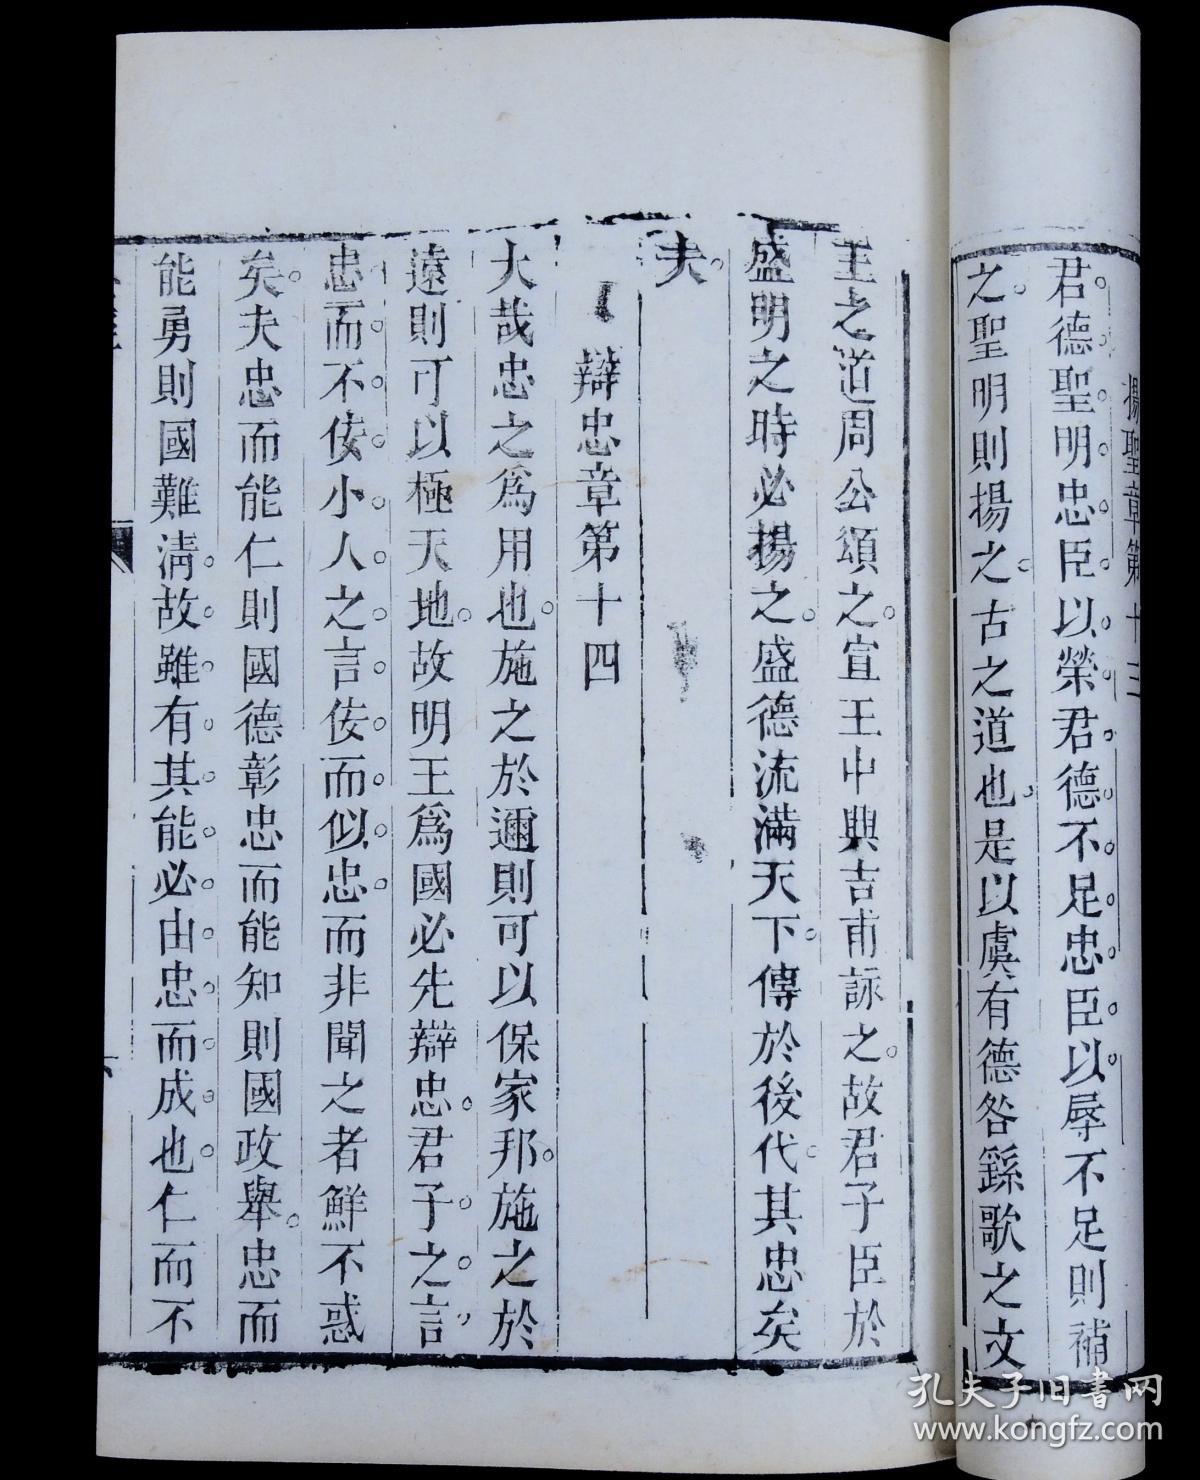 揚聖章第十三
君德聖明忠臣以榮君德不足忠臣以辱不足則補
之聖明則揚之古之道也是以虞有德咎繇歌之文
王之道周公頌之宣王中興吉甫詠之故君子臣於
盛明之時必揚之盛德流滿天下傳於後代其忠矣
夫
辯忠章第十四
大哉忠之爲用也施之於邇則可以保家邦施之於
遠則可以極天地故明王爲國必先辯忠君子之言
忠而不佞小人之言佞而似忠而非聞之者鮮不惑
矣夫忠而能仁則國德彰忠而能知則國政舉忠而
能勇則國難淸故雖有其能必由忠而成也仁而不
孔夫子旧书网
www.kongfz.com